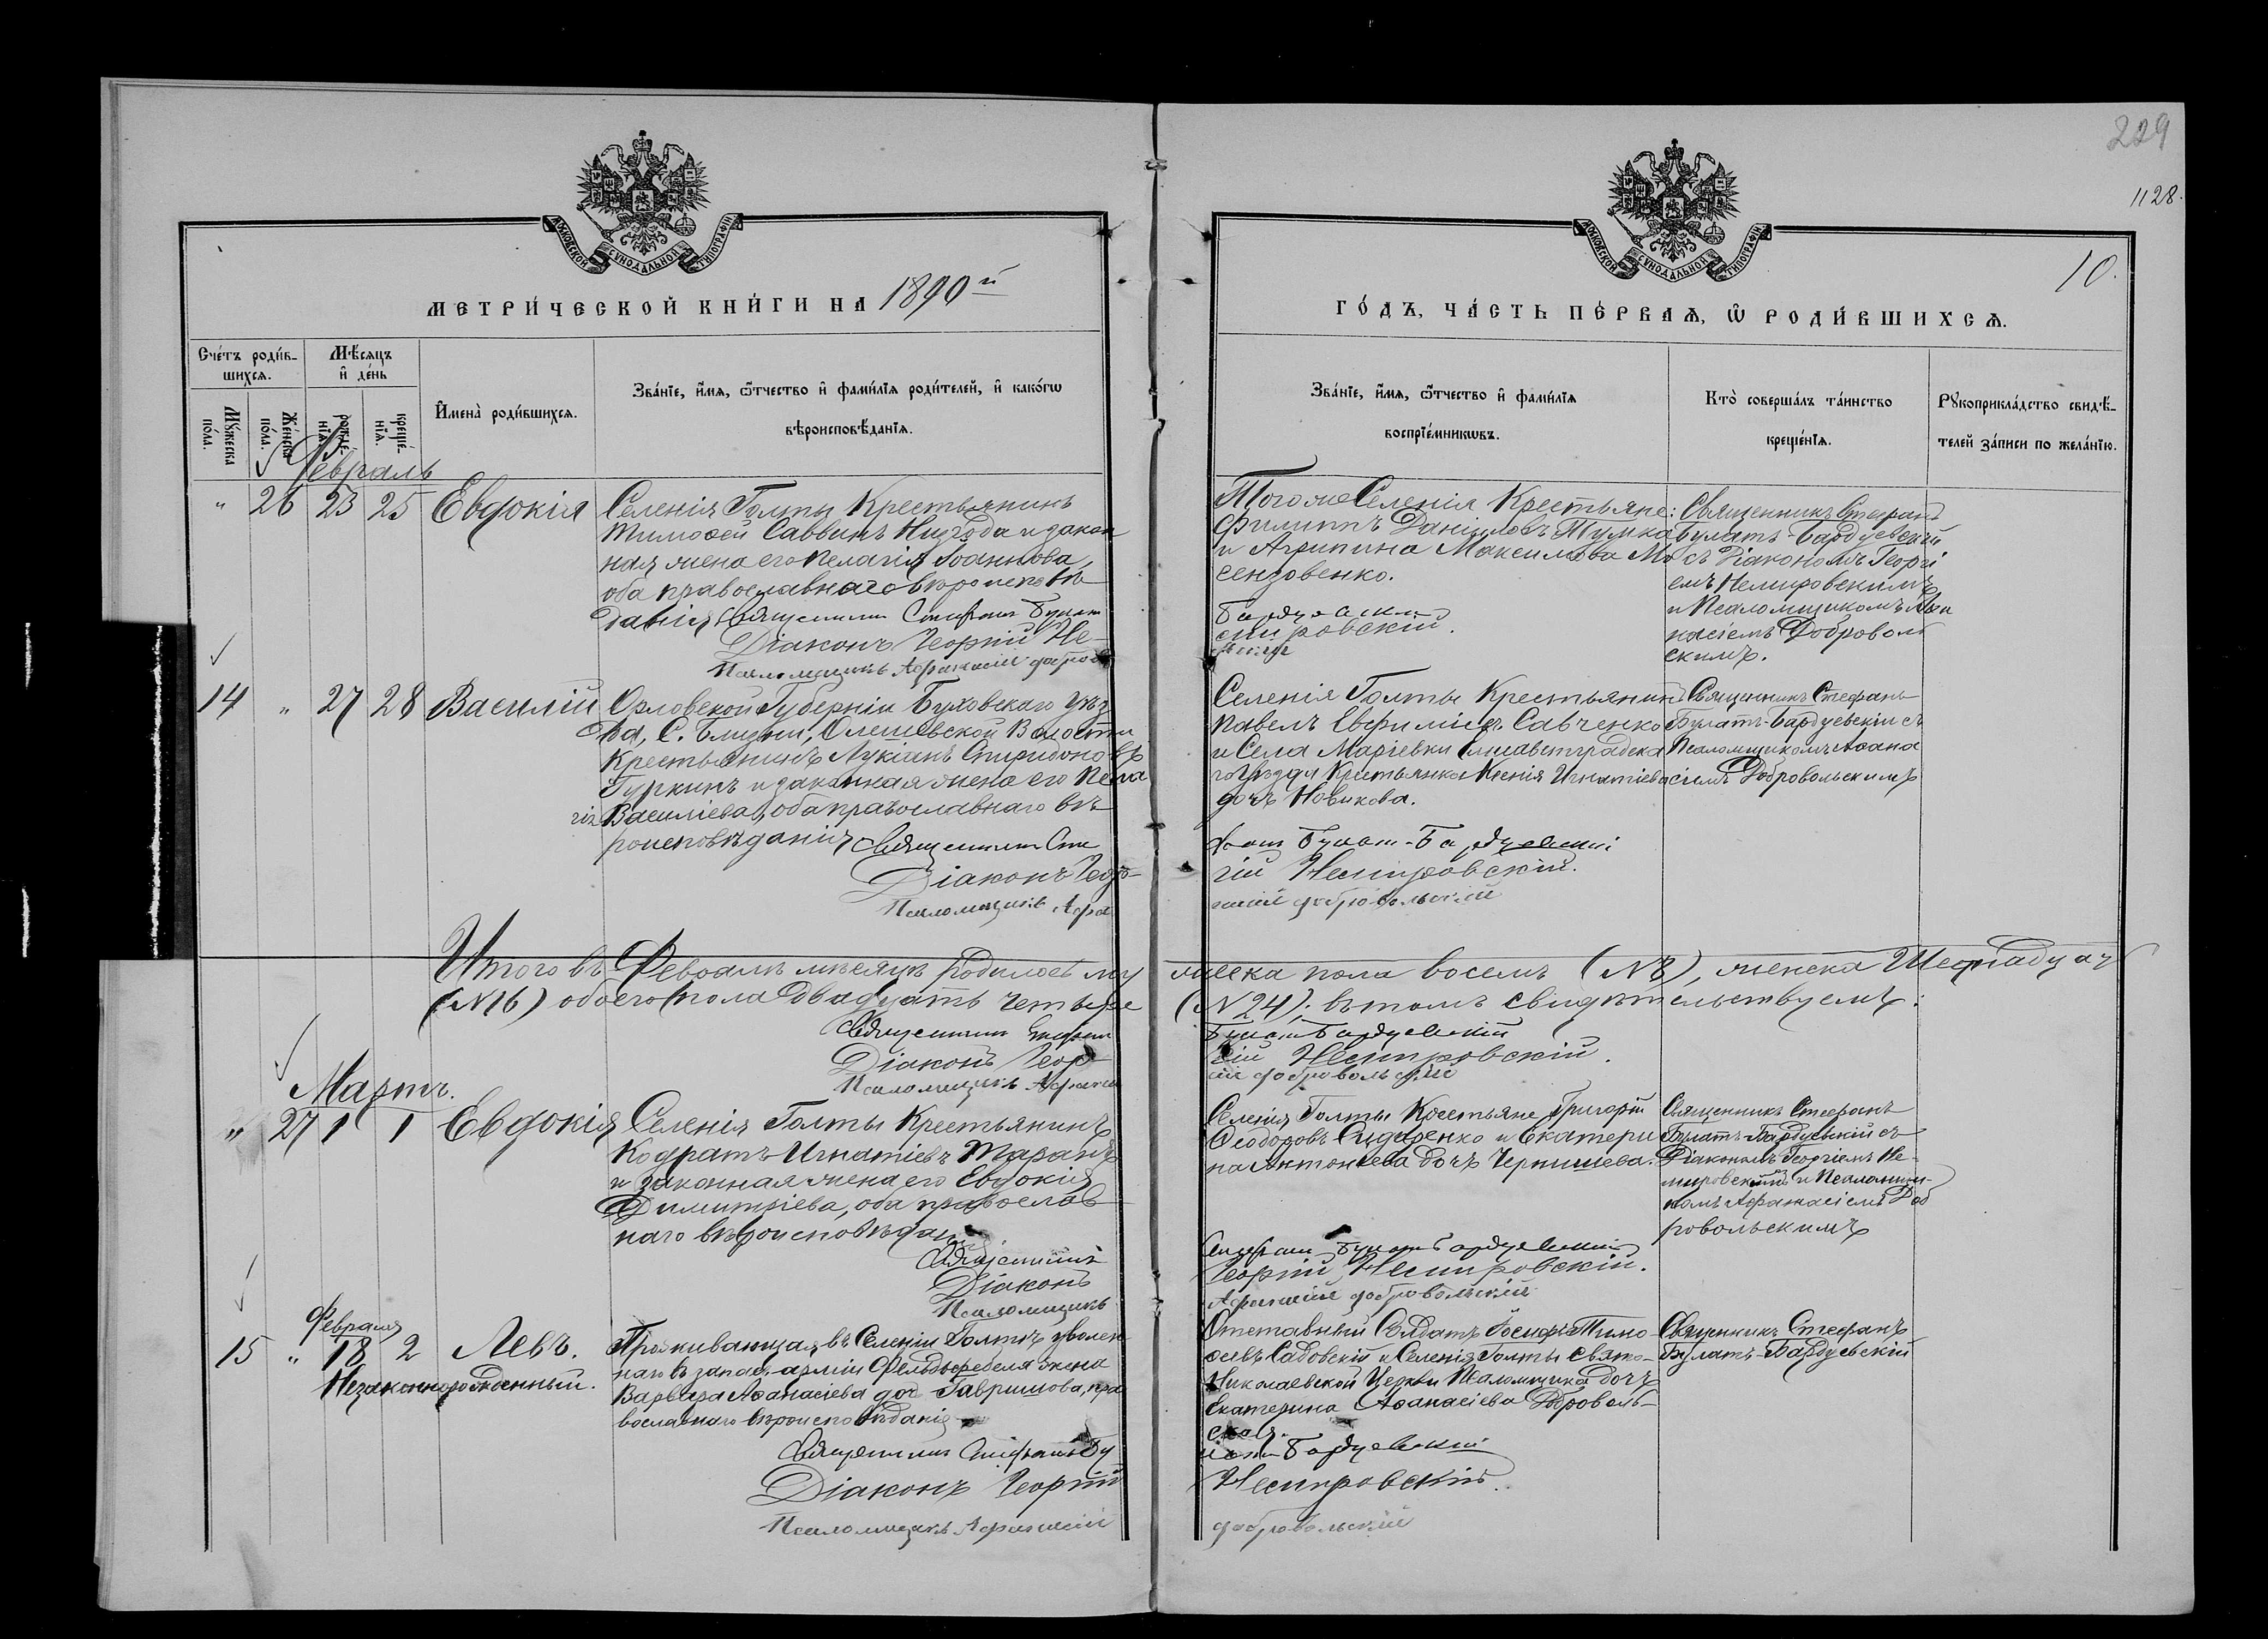 229
1128.
МОСКОВСКОЙ СѴНОДАЛЬНОЙ ТИПОГРАФІИ
МОСКОВСКОЙ СѴНОДАЛЬНОЙ ТИПОГРАФІИ
МЕТРИ́ЧЕСКОЙ КНИ́ГИ НА 1890й
ГО́ДЪ, ЧА́СТЬ ПЕ́РВАѦ, Ѡ РОДИ́ВШИХСѦ.
10.
Счéтъ роди́в-
шихся.
Мѣ́сяцъ
и҆ де́нь
Мꙋ́жеска
по́ла.
Же́нска
по́ла.
рожде́-
нїѧ.
креще́-
нїѧ.
И҆мена̀ роди́вшихся.
Зва́нїе, и҆́мѧ, ѻ҆́тчество и҆ фами́лїѧ роди́телей, и҆ како́гѡ
вѣроисповѣ́данїѧ.
Зва́нїе, и҆́мѧ, ѻ҆́тчество и҆ фами́лїѧ
воспрїе́мникѡвъ.
Кто̀ соверша́лъ та́инство
креще́нїѧ.
Рꙋкоприкла́дство свидѣ́-
телей за́писи по жела́нїю.
Февраль
" 26 23 25 Евдокія
Селенія Голты Крестьянинъ
Тимофей Саввинъ и закон
ная жена его Пелагія Іоаннова,
оба православнаго вѣроисповѣ-
данія Священникъ Стефанъ Булат
Діаконъ Георгій Не-
Псаломщикъ Афанасій Добро
Того же Селенія Крестьяне:
Филиппъ Даніиловъ Тумка
и Агрипина Максимова Мо
сензовенко.
Бардуевскій
мировскій.
Священникъ Стефанъ
Булатъ-Бардуевскій
съ Діакономъ Георгі
емъ Немировскимъ
и Псаломщикомъ Афа
насіемъ Доброволь
скимъ.
14 " 27 28 Василій
Орловской Губерніи Болховскаго Уѣз
да, С. Близни, Олешевской Волости
Крестьянинъ Лукіанъ Спиридоновъ
Гуркинъ и законная жена его Пела
гія Василіева, оба православнаго вѣ-
роисповѣданія Священникъ Сте
Діаконъ Геор-
Псаломщикъ Афа
Селенія Голты Крестьянинъ
Павелъ Евфиміевъ Савченко
и Села Маріевки Елисаветградска
го Уѣзда Крестьянка Ксенія Игнатіева
дочь Новикова.
фанъ Булат-Бардуевскій
гій Немировскій.
насій Добровольскій
Священникъ Стефанъ
Булатъ-Бардуевскій съ
Псаломщикомъ Афана
сіемъ Добровольскимъ
Итого въ Февралѣ мѣсяцѣ родилось му
жеска пола восемь (№8), женска Шестнадцать
(№16) обоего пола двадцать четыре
(№24); въ томъ свидѣтельствуемъ:
Священникъ Стефан
Булатъ Бардуевскій
Діаконъ Геор
гій Немировскій.
Псаломщикъ Афанас
ій Добровольскій
Мартъ.
" 27 1 1 Евдокія
Селенія Голты Крестьянинъ
Кодратъ Игнатіевъ Таранъ
и законная жена его Евдокія
Димитріева, оба православ
наго вѣроисповѣданія
Священникъ
Діаконъ
Псаломщикъ
Селенія Голты Крестьяне Григорій
Феодоровъ Сидоренко и Екатери
на Антоніева дочь Чернишева.
Стефанъ Булатъ Бардуевскій
Георгій Немировскій.
Афанасій Добровольскій
Священникъ Стефанъ
Булатъ-Бардуевскій съ
Діакономъ Георгіемъ Не-
мировскимъ и Псаломщи-
комъ Афанасіемъ Доб
ровольскимъ
Февраля
15 " 18 2 Левъ.
Незаконнорожденный.
Проживающая въ Селеніи Голтѣ уволен
наго въ запасъ арміи Фельдфебеля жена
Варвара Афанасіева доч Гавришова, пра
вославнаго вѣроисповѣданія
Священникъ Стефанъ Бу
Діаконъ Георгій
Псаломщикъ Афанасій
Отставный Солдатъ Іосифъ Тимо-
феевъ Садовскій и Селенія Голты Свято-
Николаевской Церкви Псаломщика дочь
Екатерина Афанасіева Доброволь-
ская.
латъ-Бардуевскій
Немировскій.
Добровольскій
Священникъ Стефанъ
Булатъ-Бардуевскій